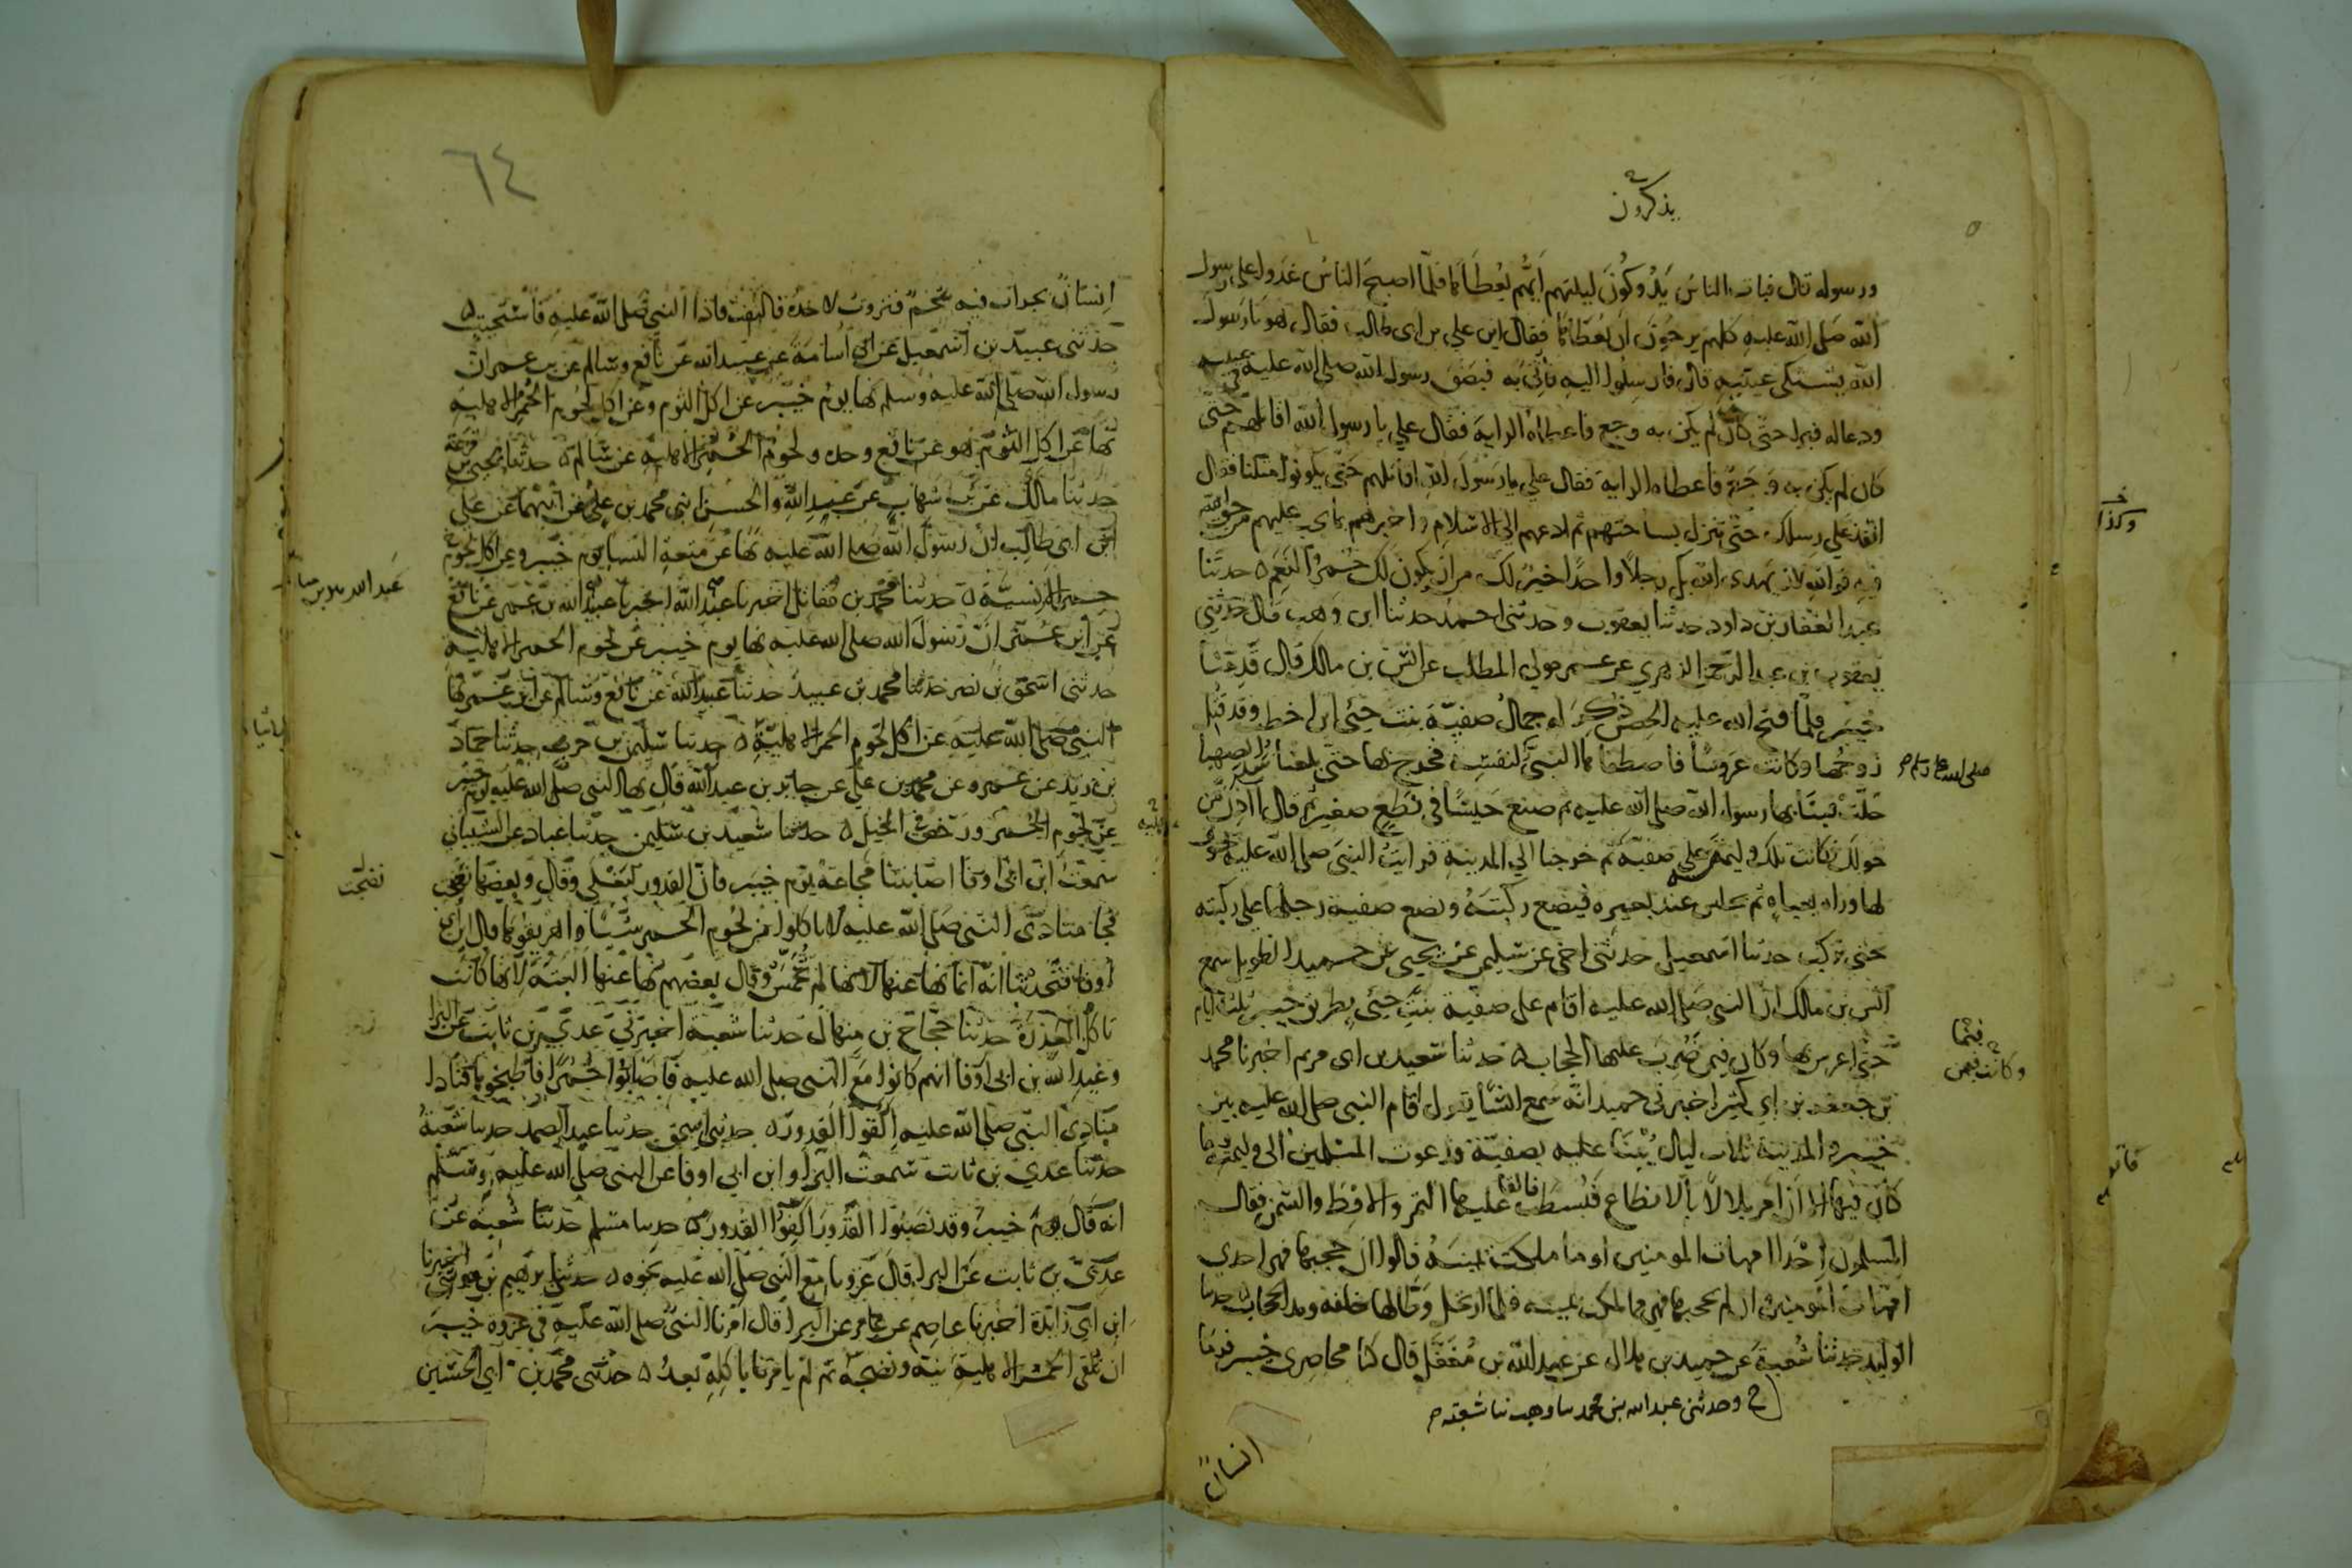 يذكرون
ورسوله قال فبات الناس يَدُوكُونَ ليلتهم ايهُّم يُعْطَاها فلمّا اصبحَ الناسُ غدَوا على رسول
الله صلى الله عليه كلهم يرجُونَ ان يُعْطَاها فقال اين علي بن ابى طالب فقال هو يا رسول
الله يشتكى عينيه قال فارسلوا اليه فأتى به فبصَقَ رسول الله صلى الله عليه في عينيه
ودعا له فبرا حتى كان لم يكن به وجع فاعطاه الراية فقال علي يا رسول الله اقاتلهم حتى
كان لم يكن به وجع فاعطاه الراية فقال علي يا رسول الله اقاتلهم حتى يكونوا مثلنا فقال
انفذ على رسلك حتى تنزل بساحتهم ثم ادعهم الى الاسلام واخبرهم بما يجب عليهم من حق الله
فيه فوالله لان يهدى الله بك رجلاً واحدًا خيرٌ لك من ان يكون لك حُمرُ النعم ه حدثنا
عبد الغفار بن داود حدثنا يعقوب وحدثنى احمد حدثنا ابن وهب قال حدثني
يعقوب بن عبد الرحمن الزهري عن عمرو مولى المطلب عن انس بن مالك قال قدمنا
خيبر فلمّا فتح الله عليه الحصن ذُكِرَ له جمالُ صفيّة بنت حيي ابن اخطب وقد قُتِل
زوجُها وكانت عروسًا فاصطفاها النبيُّ لنفسه فخرج بها حتى بلغنا سُدَّ الصهبا
صلى الله عليه وسلم
حَلّتْ فبنَا بها رسول الله صلى الله عليه ثم صنع حَيسًا في نطعٍ صغيرٍ ثم قال آذِن من
حولكَ فكانت تلك وليمتَه على صفيّة ثم خرجنا الى المدينة فرايت النبيَ صلى الله عليه يحوّى
لها وراه بعباةٍ ثم يجلس عند بعيره فيضع ركبتَهُ وتضع صفية رجلها على ركبته
حتى تركب حدثنا اسمعيل حدثنى اخى عن سليمن عن يحيى عن حميد الطويل سمع
انس بن مالك ان النبى صلى الله عليه اقام على صفية بنت حيي بطريق خيبر ثلثة ايام
حتى اعرس بها وكان فيمن ضُرِبَ عليها الحجاب ه حدثنا سعيد بن ابى مريم اخبرنا محمد
فيمَا
وكانت فيمن
بن جعفر بن ابى كثير اخبرنى حميد انه سمع انسًا يقول اقام النبى صلى الله عليه بين
خيبر والمدينة ثلاث ليال يُبْنَا عليه بصفيّة فدعوت المسلمين الى وليمته وما
كان فيها الا ان امر بلالاً بالانطاع فبُسطت فالقا عليها التمر والاقط والسمن فقال
المسلمون احدا امهات المومنين او ما ملكت يمينه قالوا ان حجبها فهى احدى
امهات المومنين وان لم يحجبها فهى مما ملكت يمينه فلما ارتحل وطّا لها خلفه ومد الحجاب ه حدثنا
الوليد حدثنا شعبة عن حميد بن هلال عن عبد الله بن مُغَفّل قال كنا محاصرى خيبر فرمَا
ح وحدثنى عبد الله بن محمد نا وهب نا شعبة
انسانٌ
٦٤
اِنسانٌ بجراب فيه شحمٌ فنزوت لاخذه فالتفتُّ فاذا النبيُّ صلى الله عليه فاستحييت ه
حدثنى عبيد بن اسمعيل عن ابى اُسامة عن عبيد الله عن نافع وسالم عن بن عمر انّ
رسول الله صلى الله عليه وسلم نها يوم خيبر عن اكل الثوم وعن اكل لحوم الحُمر الاهلية
نها عن اكل الثوم هو عن نافع وحده ولحوم الحُمُر الاهلية عن سالم ه حدثنا يحيى بن قزعة
حدثنا مالك عن بن شهاب عن عبد الله والحسن ابنى محمد بن علي عن ابيهما عن على
ابن ابى طالب ان رسول الله صلى الله عليه نها عن متعة النسا يوم خيبر وعن اكل لحوم
حمر الانسيّة ه حدثنا محمد بن مقاتل اخبرنا عبد الله اخبرنا عبيد الله بن عمر عن نافع
عن ابن عمر انّ رسول الله صلى الله عليه نها يوم خيبر عن لحوم الحمر الاهلية
حدثنى اسحق بن نصر حدثنا محمد بن عبيد حدثنا عبيد الله عن نافع وسالم عن ابن عمر نها
النبى صلى الله عليه عن اكل لحوم الحمر الاهليّة ه حدثنا سليمن بن حرب حدثنا حماد
بن زيد عن عمرو عن محمد بن علي عن جابر بن عبد الله قال نها النبى صلى الله عليه يوم خيبر
عن لحوم الحُمر ورخص في الخيل ه حدثنا سعيد بن سليمن حدثنا عباد عن الشيباني
سمعت ابن ابى اوفا اصابتنا مجاعة يوم خيبر فان القدور لتغلى وقال وبعضها نضجت
نضجت
فجا منادى النبى صلى الله عليه لا تاكلوا من لحوم الحمر شيئًا واهريقوها قال ابن ابى
اوفا فتحدثنا انه انما نها عنها لانها لم تُخمس وقال بعضهم نها عنها البتة لانها كانت
تاكل العذرة حدثنا حجّاج بن منهال حدثنا شعبة اخبرنى عدىّ بن ثابت عن البرا
وعبد الله بن ابى اوفا انهم كانوا مع النبى صلى الله عليه فاصابوا حُمُرًا فاطبخوها فنادا
منادى النبى صلى الله عليه اَكفوا القدور ه حدثنى اسحق حدثنا عبد الصمد حدثنا شعبة
حدثنا عدي بن ثابت سمعت البرا وابن ابى اوفا عن النبى صلى الله عليه وسلم
انه قال يوم خيبر وقد نصبوا القدور اكفوا القدور ه حدثنا مسلم حدثنا شعبة عن
عدىّ بن ثابت عن البرا قال غزونا مع النبى صلى الله عليه نحوه ه حدثنى ابرهيم بن موسى اخبرنا
ابن ابى زائدة اخبرنا عاصم عن عامر عن البرا قال امرنا النبى صلى الله عليه في غزوة خيبر
ان نُلقى الحُمر الاهلية نيّة ونضيجة ثم لم يامرنا باكله بعدُ ه حدثنى محمد بن ابى الحسين